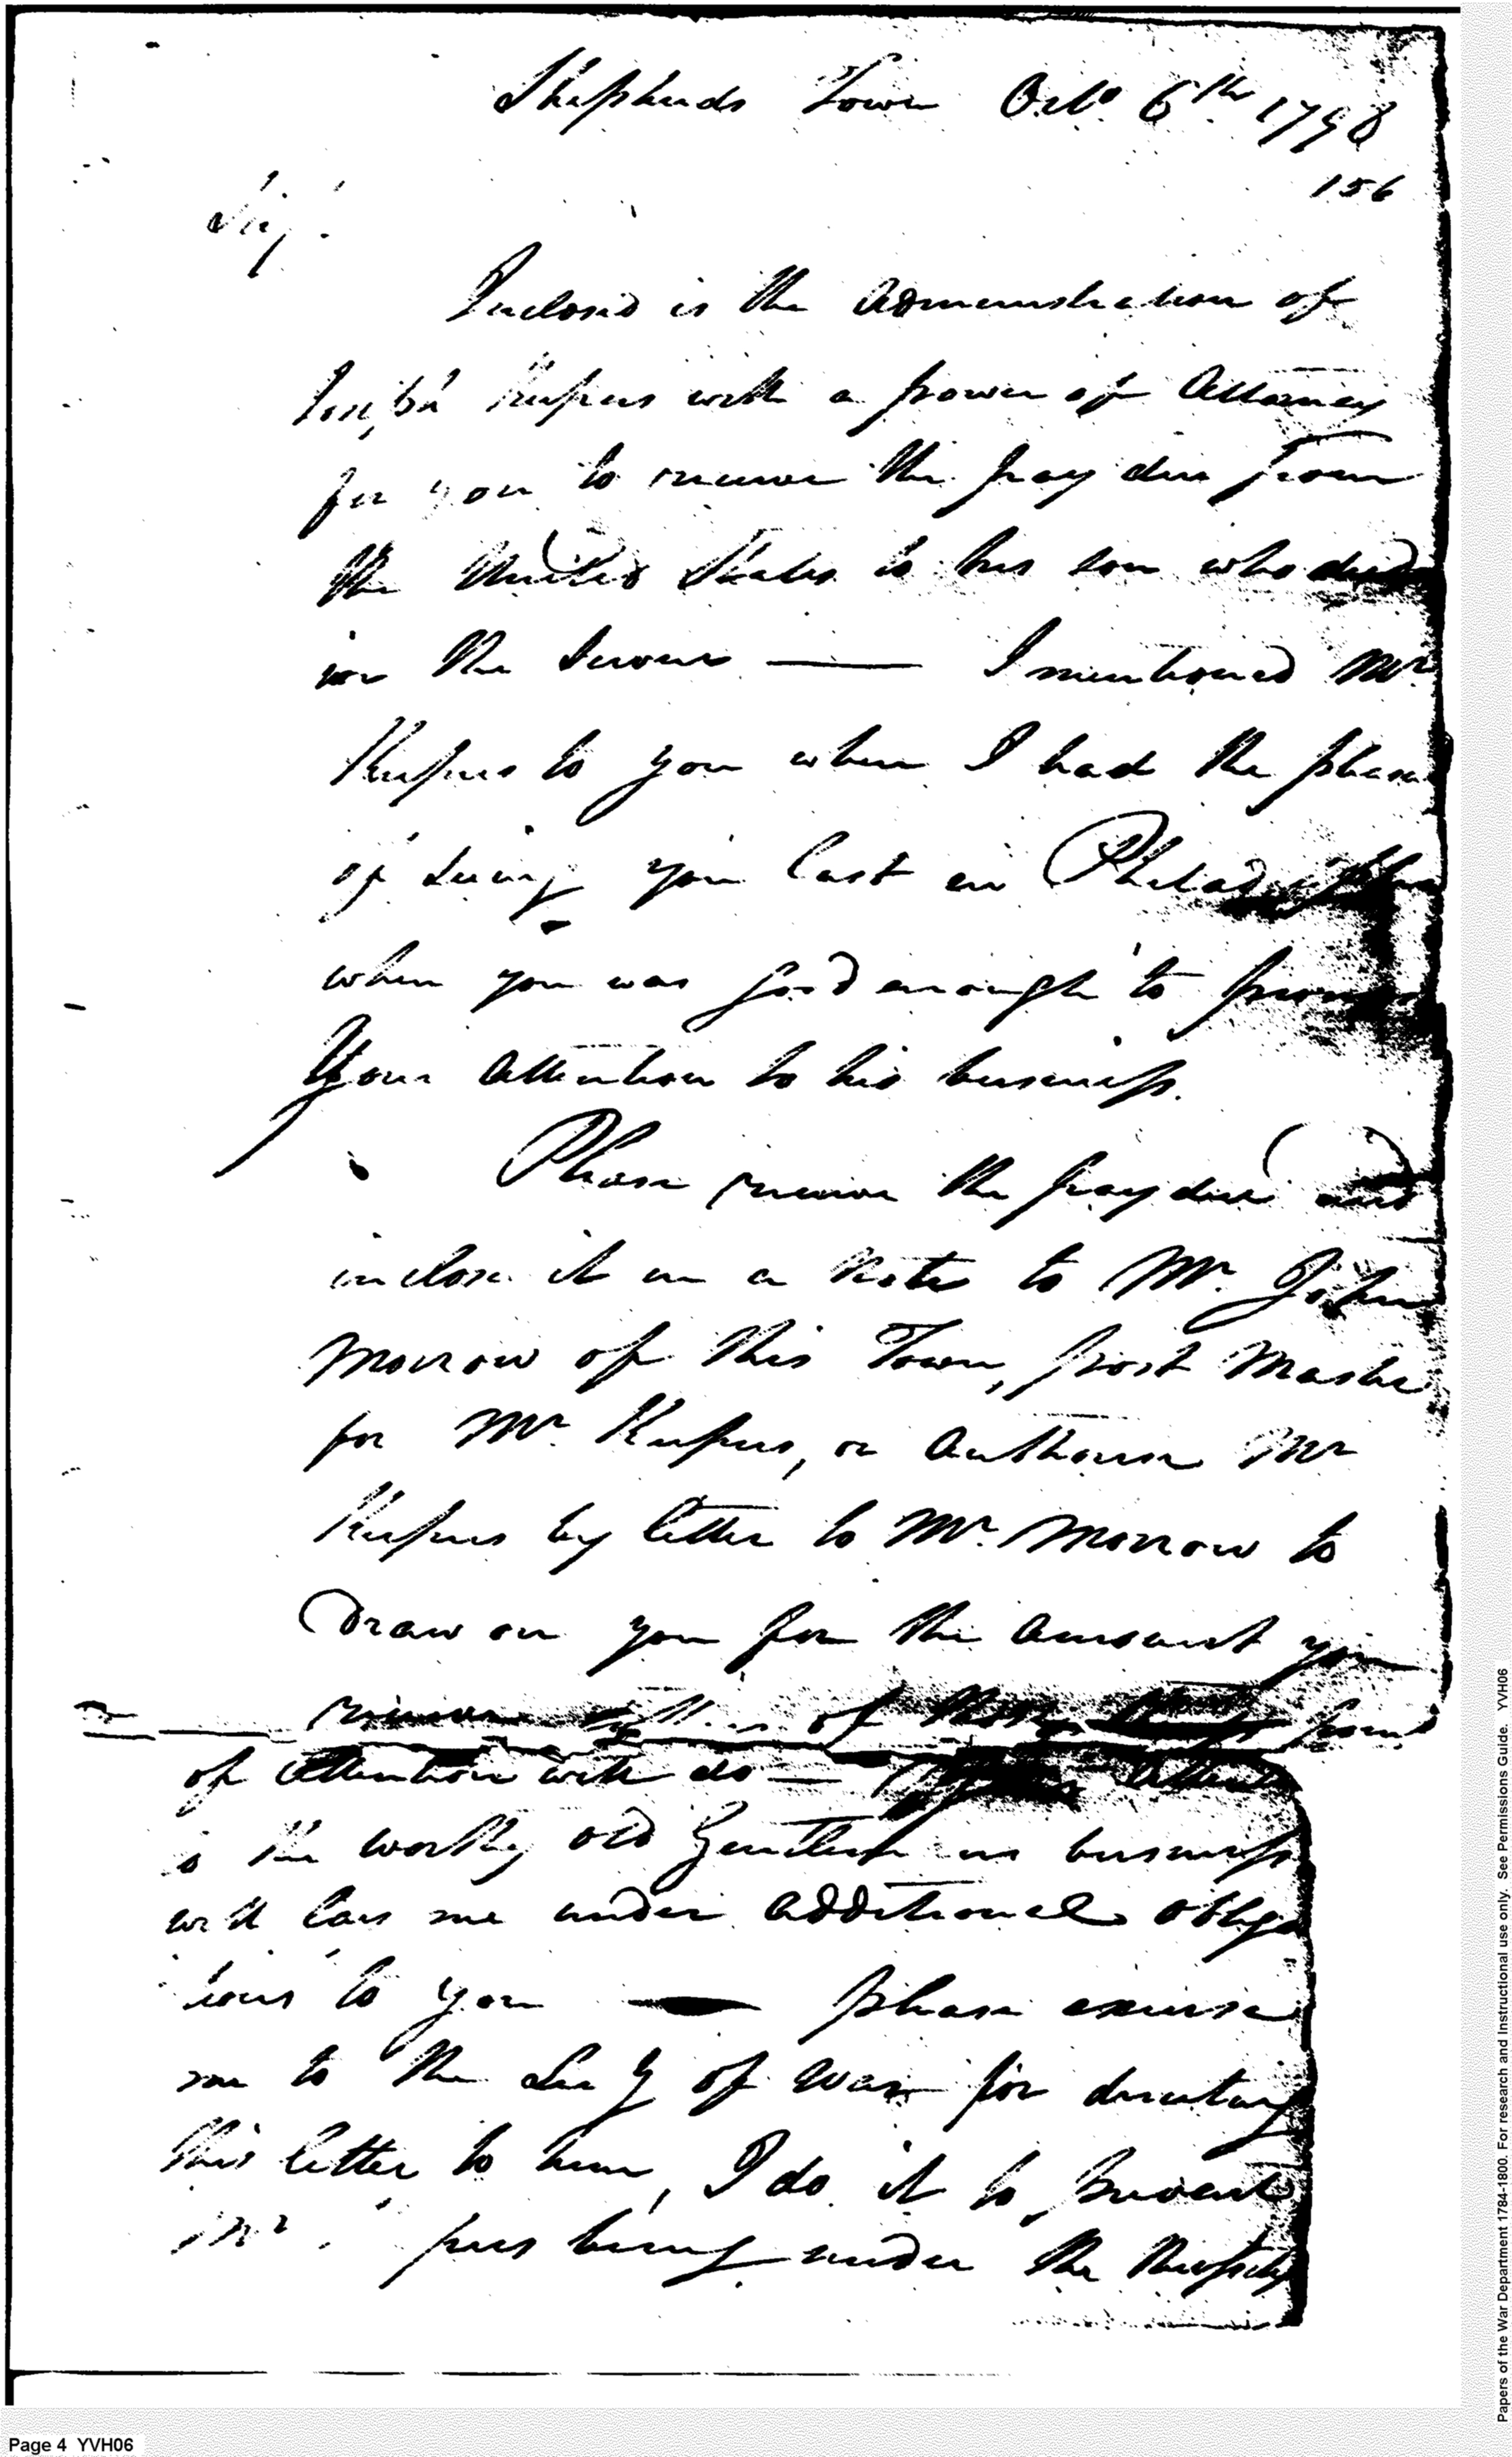 Shepherds Town Octo 6th 1798
156
Sir,
Inclosed is the Administration of
Joseph Kepus with a power of Attorney
for you to receive the pay due from
the United States to his son who died
in the Service — I mentioned Mr
Kepus to you when I had the pleasu
of Seeing you last in Philadelphia
when you was good enough to promise
Your Attention to his business.
Please receive the pay due and
inclose it in a Note to Mr. John
Morrow of this Town, post Master
for Mr. Kepus, or Authorise Mr
Kepus by letter to Mr. Morrow to
Draw on you for the amount you
receive either of these
of Attention will do —
to the worthy old Gentlemans business
will lay me under additional obliga
tions to you — please excuse
me to the Secy of War for directing
this letter to him, I do it to prevent
Mr pus being under the Necessity
Page 4 YVH06
Papers of the War Department 1784-1800. For research and Instructional use only. See Permissions Guide. YVH06